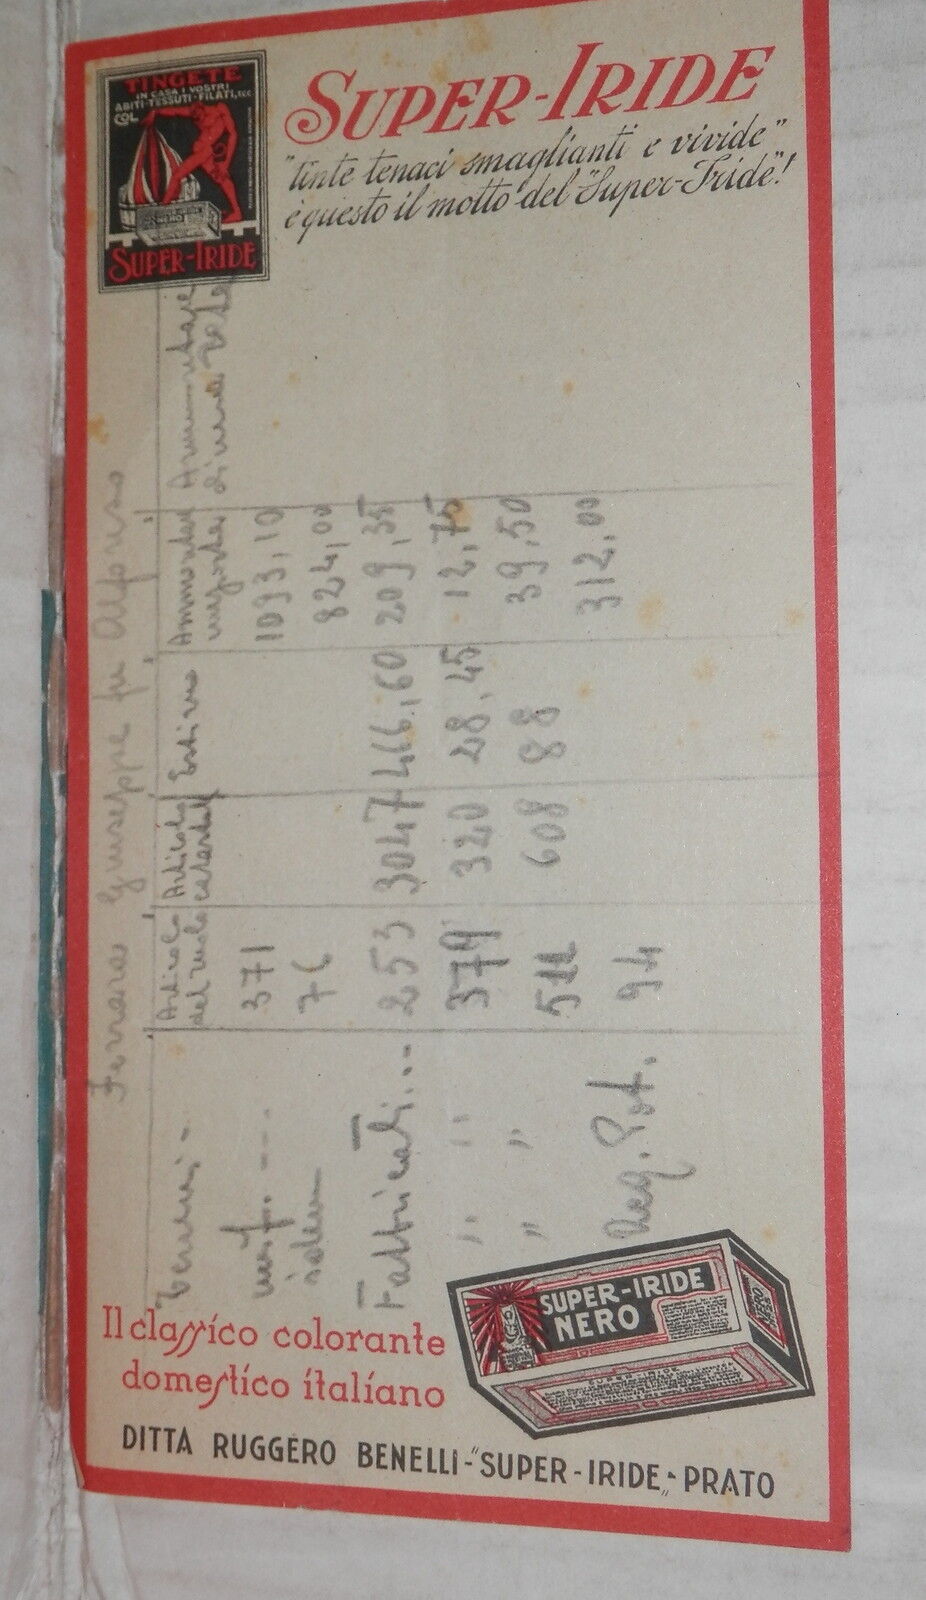 TINGETE
IN CASA I VOSTRI
ABITI-TESSUTI-FILATI, ECC
COL
NERO
SUPER-IRIDE
SUPER-IRIDE
"tinte tenaci smaglianti e vivide"
è questo il motto del "Super-Iride"!
Ferrara Giuseppe fu Alfonso
Articolo del ruolo Articolo catastale Estimo Ammontare imposta
Terreni 371 1093,10
idem 76 824,00
Fabbricati... 253 3047 466,60 209,35
" " 379 320 28,45 12,75
" " 511 608 88 39,50
Neg. Pot. 94 312,00
SUPER-IRIDE
NERO
Il classico colorante
domestico italiano
DITTA RUGGERO BENELLI-"SUPER-IRIDE"-PRATO